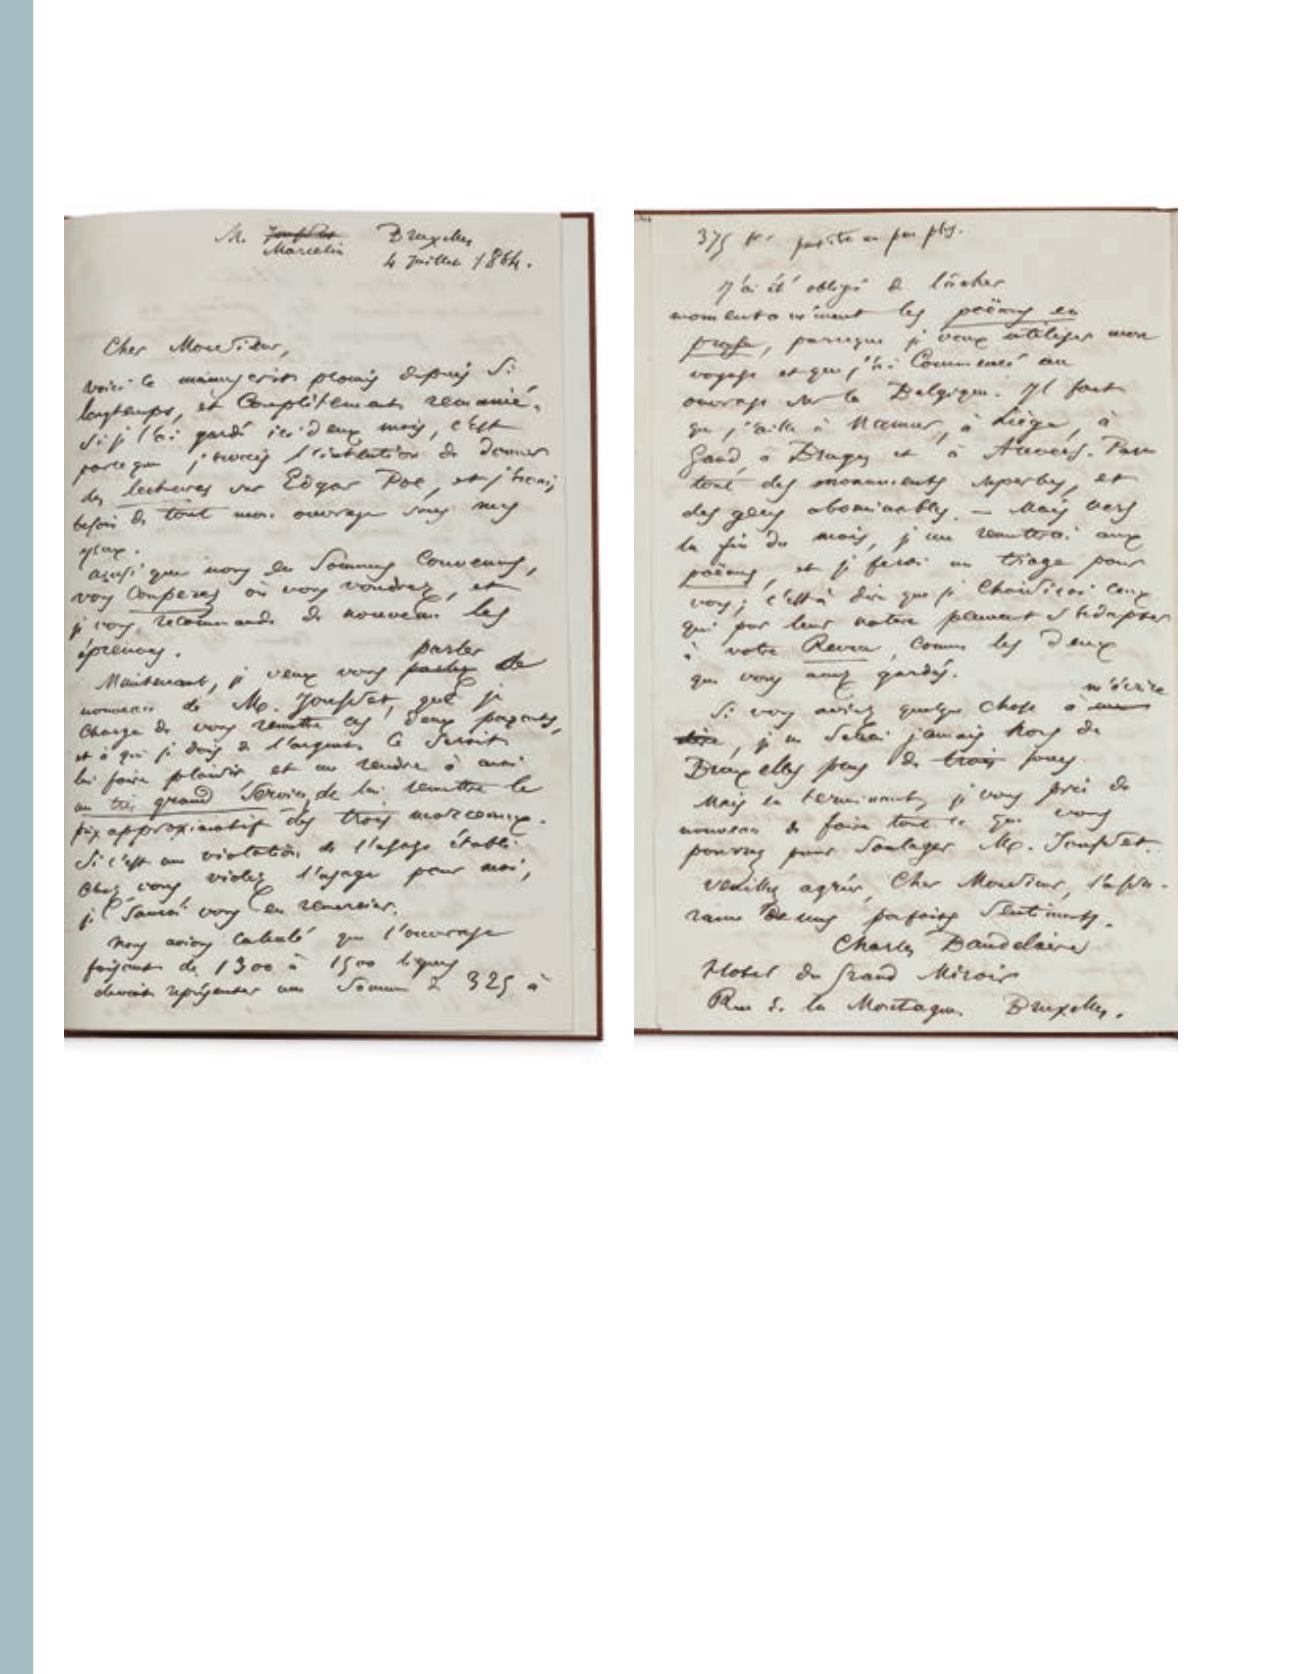 M. Jousset Bruxelles
Marcelin 4 Juillet 1864.
Cher Monsieur,
voici le manuscrit promis depuis si
longtemps, et complètement remanié.
Si je l'ai gardé ici deux mois, c'est
parce que j'avais l'intention de donner
des lectures sur Edgar Poe, et j'avais
besoin de tout mon ouvrage sous mes
yeux.
Ainsi que nous en sommes convenus,
vous couperez où vous voudrez, et
je vous recommande de nouveau les
épreuves.
parler
Maintenant, je veux vous parler de
nouveau de M. Jousset, que je
charge de vous remettre ces deux paquets,
et à qui je dois de l'argent. Ce serait
lui faire plaisir et me rendre à moi
un très grand service, de lui remettre le
prix approximatif des trois morceaux.
Si c'est une violation de l'usage établi
chez vous, violez l'usage pour moi,
je saurai vous en remercier.
Nous avions calculé que l'ouvrage
faisant de 1300 à 1500 lignes
devait représenter une somme de 325 à
375 frs
J'ai été obligé de lâcher
momentanément les poëmes en
prose, parce que je veux utiliser mon
voyage et que j'ai commencé un
ouvrage sur la Belgique. Il faut
que j'aille à Namur, à Liège, à
Gand, à Bruges et à Anvers. Par-
tout des monuments superbes, et
des gens abominables. — Mais vers
la fin du mois, je me remettrai aux
poëmes, et je ferai un triage pour
vous; c'est à dire que je choisirai ceux
qui par leur nature peuvent s'adapter
à votre Revue, comme les deux
que vous avez gardés.
m'écrire
Si vous aviez quelque chose à me
dire, je ne serai jamais hors de
Bruxelles plus de trois jours.
Mais en terminant, je vous prie de
nouveau de faire tout ce que vous
pourrez pour soulager M. Jousset.
Veuillez agréer, Cher Monsieur, l'assu-
rance de mes parfaits sentiments.
Charles Baudelaire
Hôtel du Grand Miroir
Rue de la Montagne. Bruxelles.